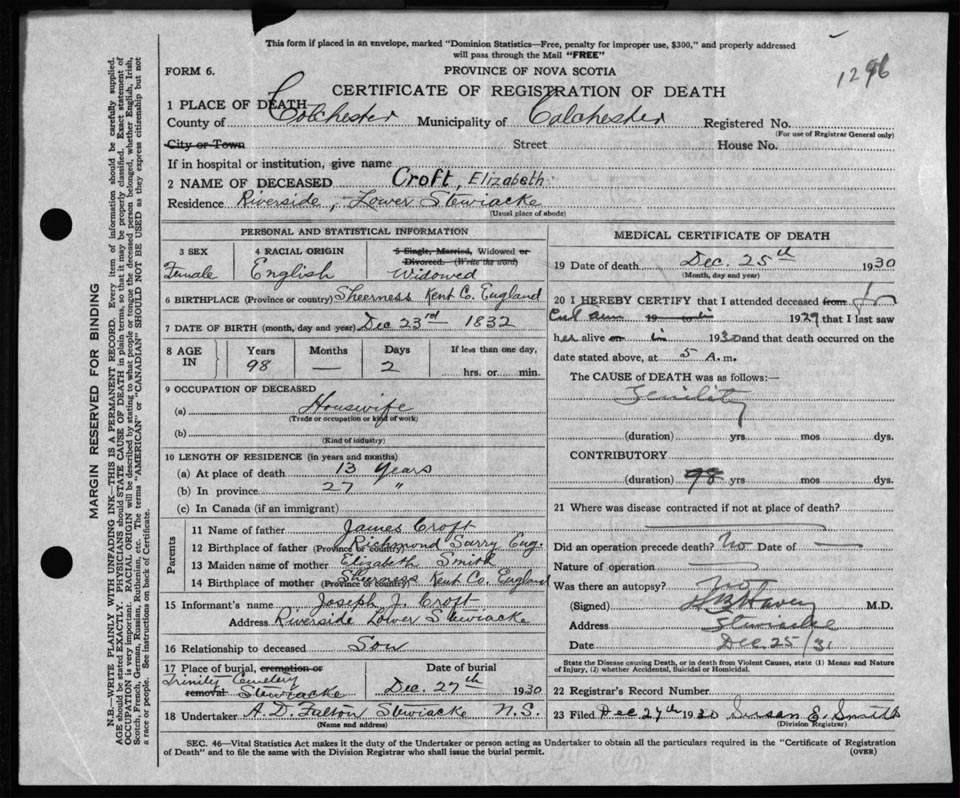 This form if placed in an envelope, marked "Dominion Statistics—Free, penalty for improper use, $300," and properly addressed
will pass through the Mail "FREE"
1296
FORM 6.
PROVINCE OF NOVA SCOTIA
CERTIFICATE OF REGISTRATION OF DEATH
1 PLACE OF DEATH
County of Colchester Municipality of Colchester Registered No.
(For use of Registrar General only)
City or Town Street House No.
If in hospital or institution, give name
2 NAME OF DECEASED Croft, Elizabeth
Residence Riverside, Lower Stewiacke
(Usual place of abode)
PERSONAL AND STATISTICAL INFORMATION
3 SEX 4 RACIAL ORIGIN 5 Single, Married, Widowed or
Divorced. (Write the word)
Female English Widowed
6 BIRTHPLACE (Province or country) Sheerness Kent C. England
7 DATE OF BIRTH (month, day and year) Dec 23rd 1832
8 AGE IN Years Months Days If less than one day,
98 — 2 hrs. or min.
9 OCCUPATION OF DECEASED
(a) Housewife
(Trade or occupation or kind of work)
(b)
(Kind of industry)
10 LENGTH OF RESIDENCE (in years and months)
(a) At place of death 13 Years
(b) In province 27 "
(c) In Canada (if an immigrant)
Parents
11 Name of father James Croft
12 Birthplace of father (Province or country) Richmond Surry Eng.
13 Maiden name of mother Elizabeth Smith
14 Birthplace of mother (Province or country) Sheerness Kent Co. England
15 Informant's name Joseph J. Croft
Address Riverside Lower Stewiacke
16 Relationship to deceased Son
17 Place of burial, cremation or removal Date of burial
Trinity Cemetery
Stewiacke Dec. 27th 1930
18 Undertaker A. D. Fulton Stewiacke N.S.
(Name and address)
MEDICAL CERTIFICATE OF DEATH
19 Date of death Dec. 25th 1930
(Month, day and year)
20 I HEREBY CERTIFY that I attended deceased from
19 to 1929 that I last saw
her alive on 1930 and that death occurred on the
date stated above, at 5 A.m.
The CAUSE OF DEATH was as follows:—
Senility
(duration) yrs mos dys.
CONTRIBUTORY
(duration) 98 yrs mos dys.
21 Where was disease contracted if not at place of death?
Did an operation precede death? No Date of —
Nature of operation
Was there an autopsy? not
(Signed) M.D.
Address Stewiacke
Date Dec 25/31
State the Disease causing Death, or in death from Violent Causes, state (1) Means and Nature
of Injury, (2) whether Accidental, Suicidal or Homicidal.
22 Registrar's Record Number
23 Filed Dec 27th 1930 Susan E. Smith
(Division Registrar)
SEC. 46—Vital Statistics Act makes it the duty of the Undertaker or person acting as Undertaker to obtain all the particulars required in the "Certificate of Registration
of Death" and to file the same with the Division Registrar who shall issue the burial permit.
(OVER)
MARGIN RESERVED FOR BINDING
N.B.—WRITE PLAINLY WITH UNFADING INK—THIS IS A PERMANENT RECORD. Every item of information should be carefully supplied.
AGE should be stated EXACTLY. PHYSICIANS should STATE CAUSE OF DEATH in plain terms, so that it may be properly classified. Exact statement of
OCCUPATION is very important. RACIAL ORIGIN will be described by stating to what people or tongue the deceased person belonged, whether English, Irish,
Scotch, French, German, Russian, Ruthenian, etc. The terms "AMERICAN" or "CANADIAN" SHOULD NOT BE USED as they express citizenship but not
a race or people. See instructions on back of Certificate.